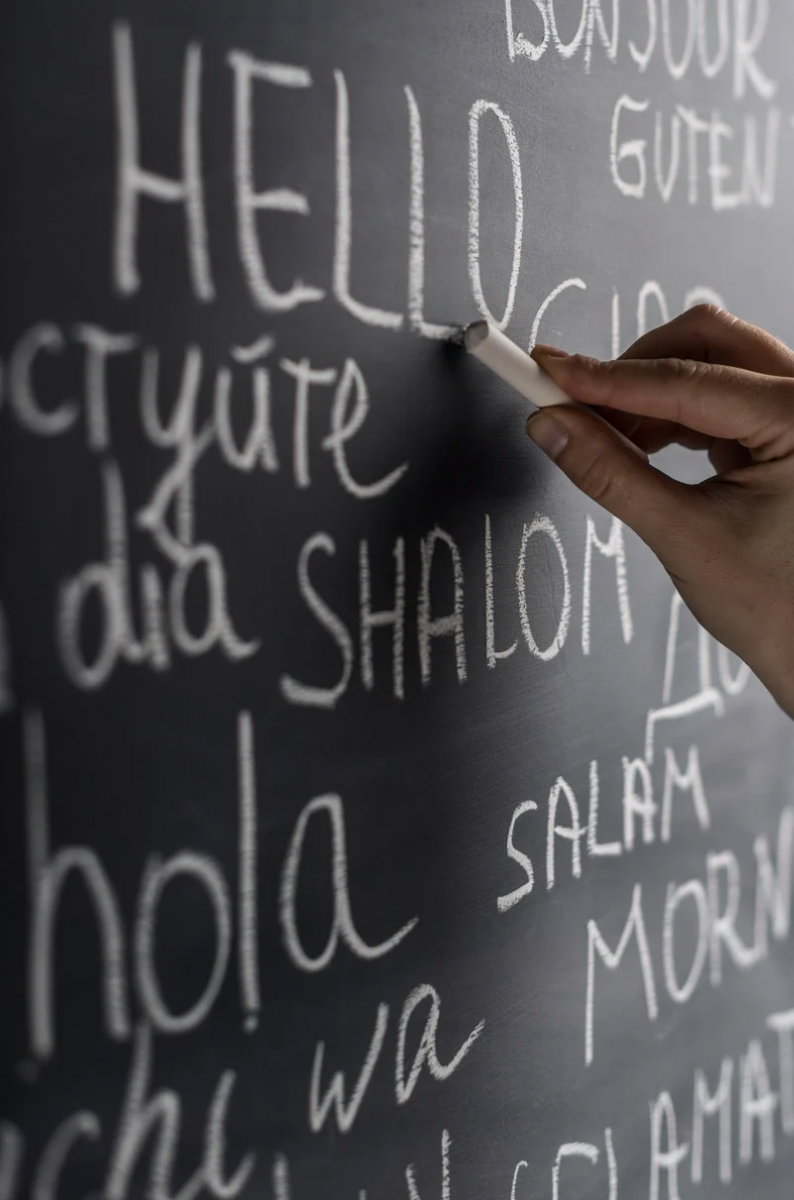 BONJOUR
HELLO
GUTEN
CIAO
стуйте
dia
SHALOM
До
hola
SALAM
MORN
wa
chi
SELAMAT